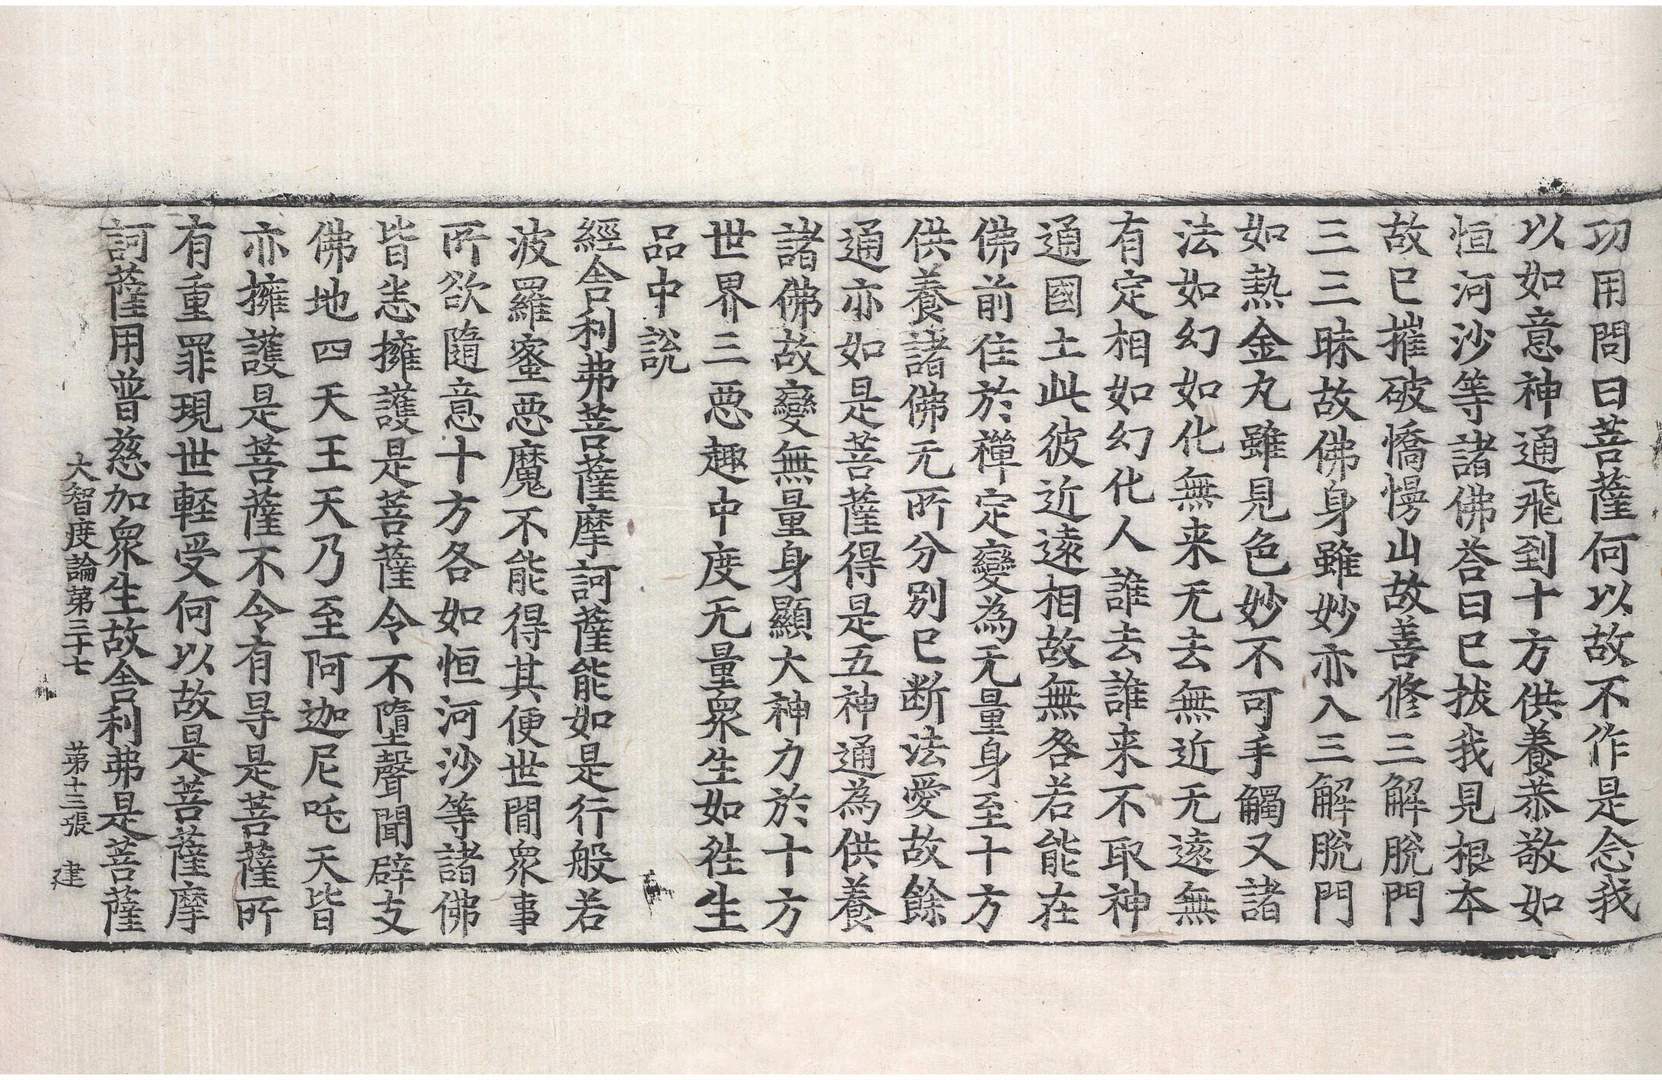 功用問曰菩薩何以故不作是念我
以如意神通飛到十方供養恭敬如
恒河沙等諸佛荅曰巳拔我見根本
故巳摧破憍慢山故善修三解脫門
三三昧故佛身雖妙亦入三解脫門
如熱金丸雖見色妙不可手觸又諸
法如幻如化無来无去無近无遠無
有定相如幻化人誰去誰来不取神
通國土此彼近遠相故無咎若能在
佛前住於禪定變為无量身至十方
供養諸佛无所分別巳断法愛故餘
通亦如是菩薩得是五神通為供養
諸佛故變無量身顯大神力於十方
世界三惡趣中度无量衆生如徃生
品中說
經舍利弗菩薩摩訶薩能如是行般若
波羅蜜惡魔不能得其便世間衆事
所欲隨意十方各如恒河沙等諸佛
皆悉擁護是菩薩令不墮聲聞辟支
佛地四天王天乃至阿迦尼吒天皆
亦擁護是菩薩不令有㝵是菩薩所
有重罪現世輕受何以故是菩薩摩
訶薩用普慈加衆生故舍利弗是菩薩
大智度論第三十七 第十三張 建